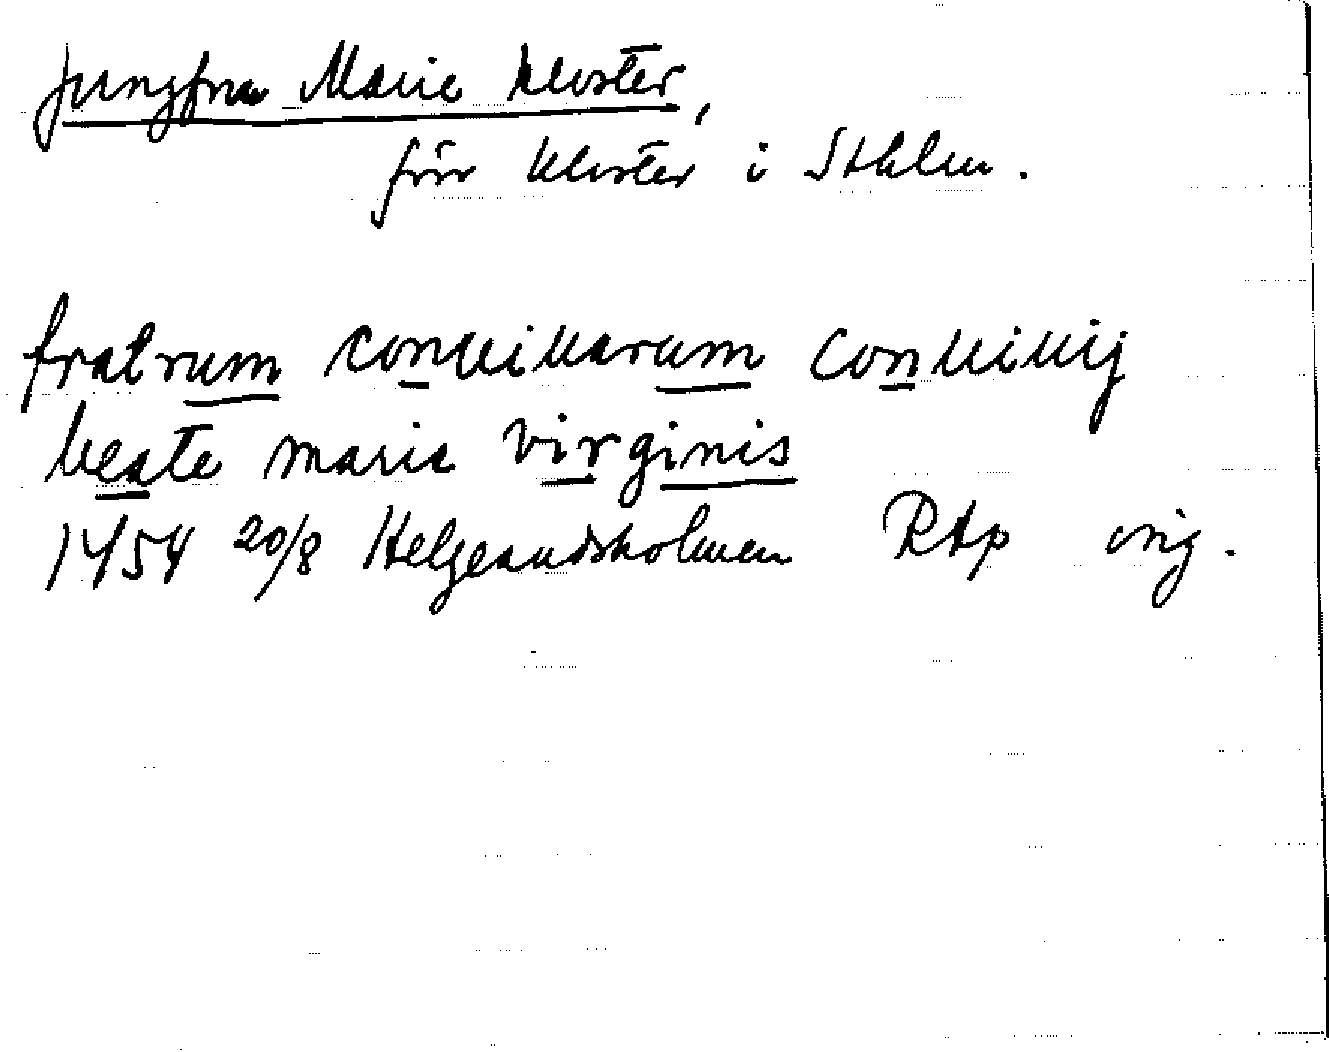 Jungfru Marie kloster,
förr kloster i Sthlm.
fratrum conuiuarum conuiuij
beate marie virginis
1454 20/8 Helgeandsholmen RAp orig.